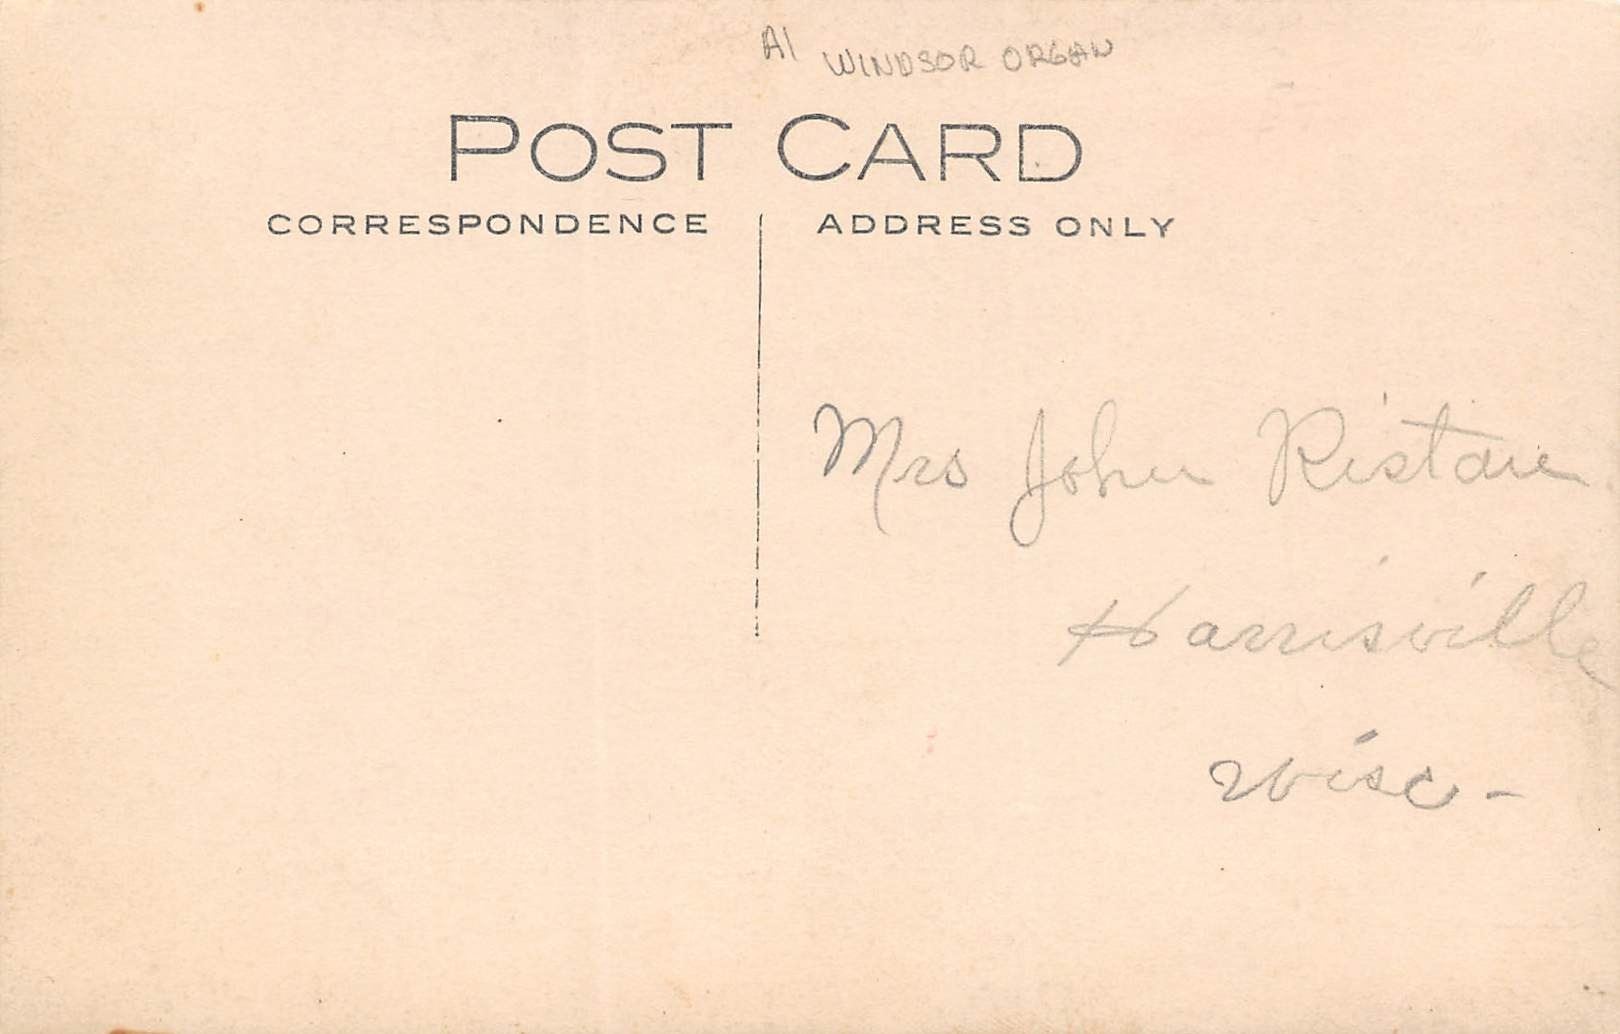 A1 WINDSOR ORGAN
POST CARD
CORRESPONDENCE
ADDRESS ONLY
Mrs John
Harrisville
Wisc-